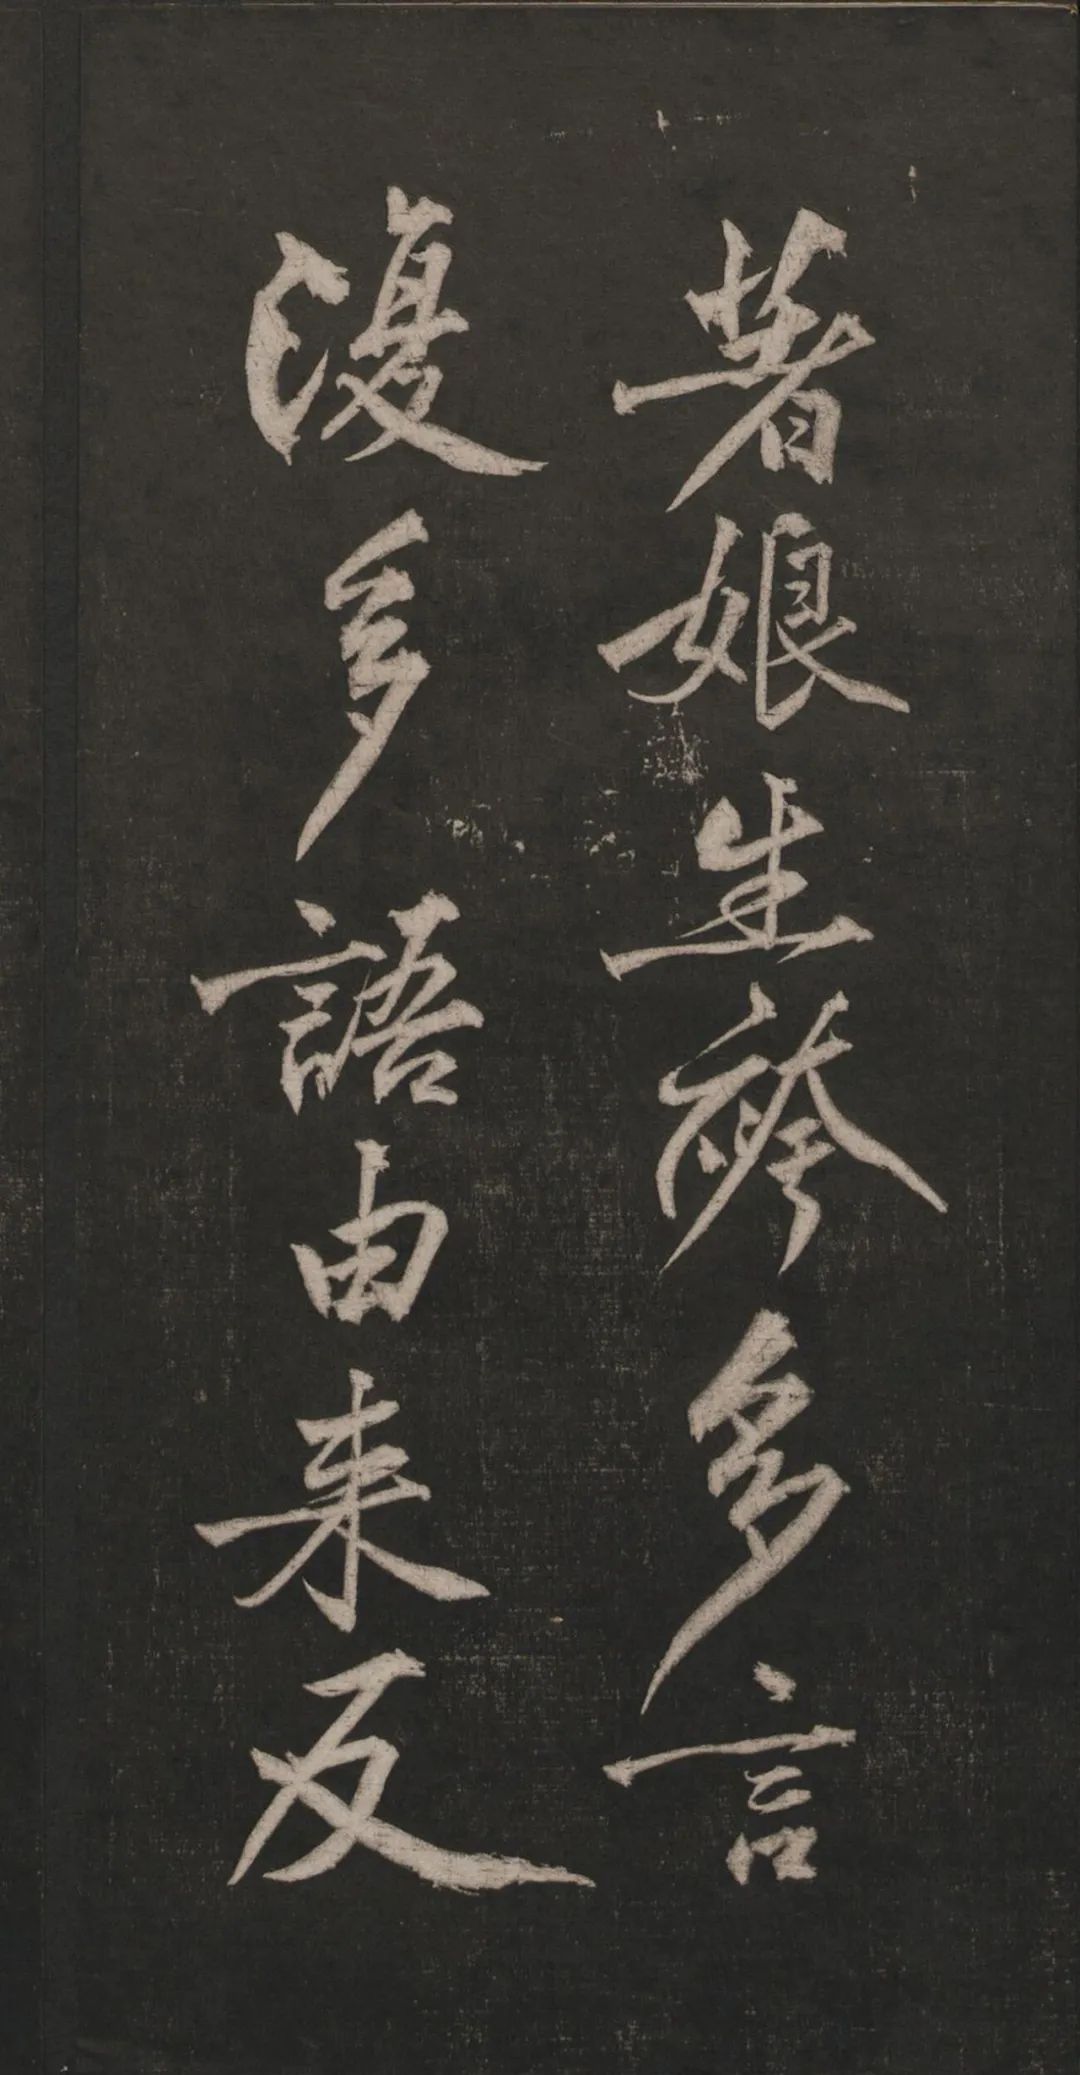 著娘生袴多言
復多語由來反